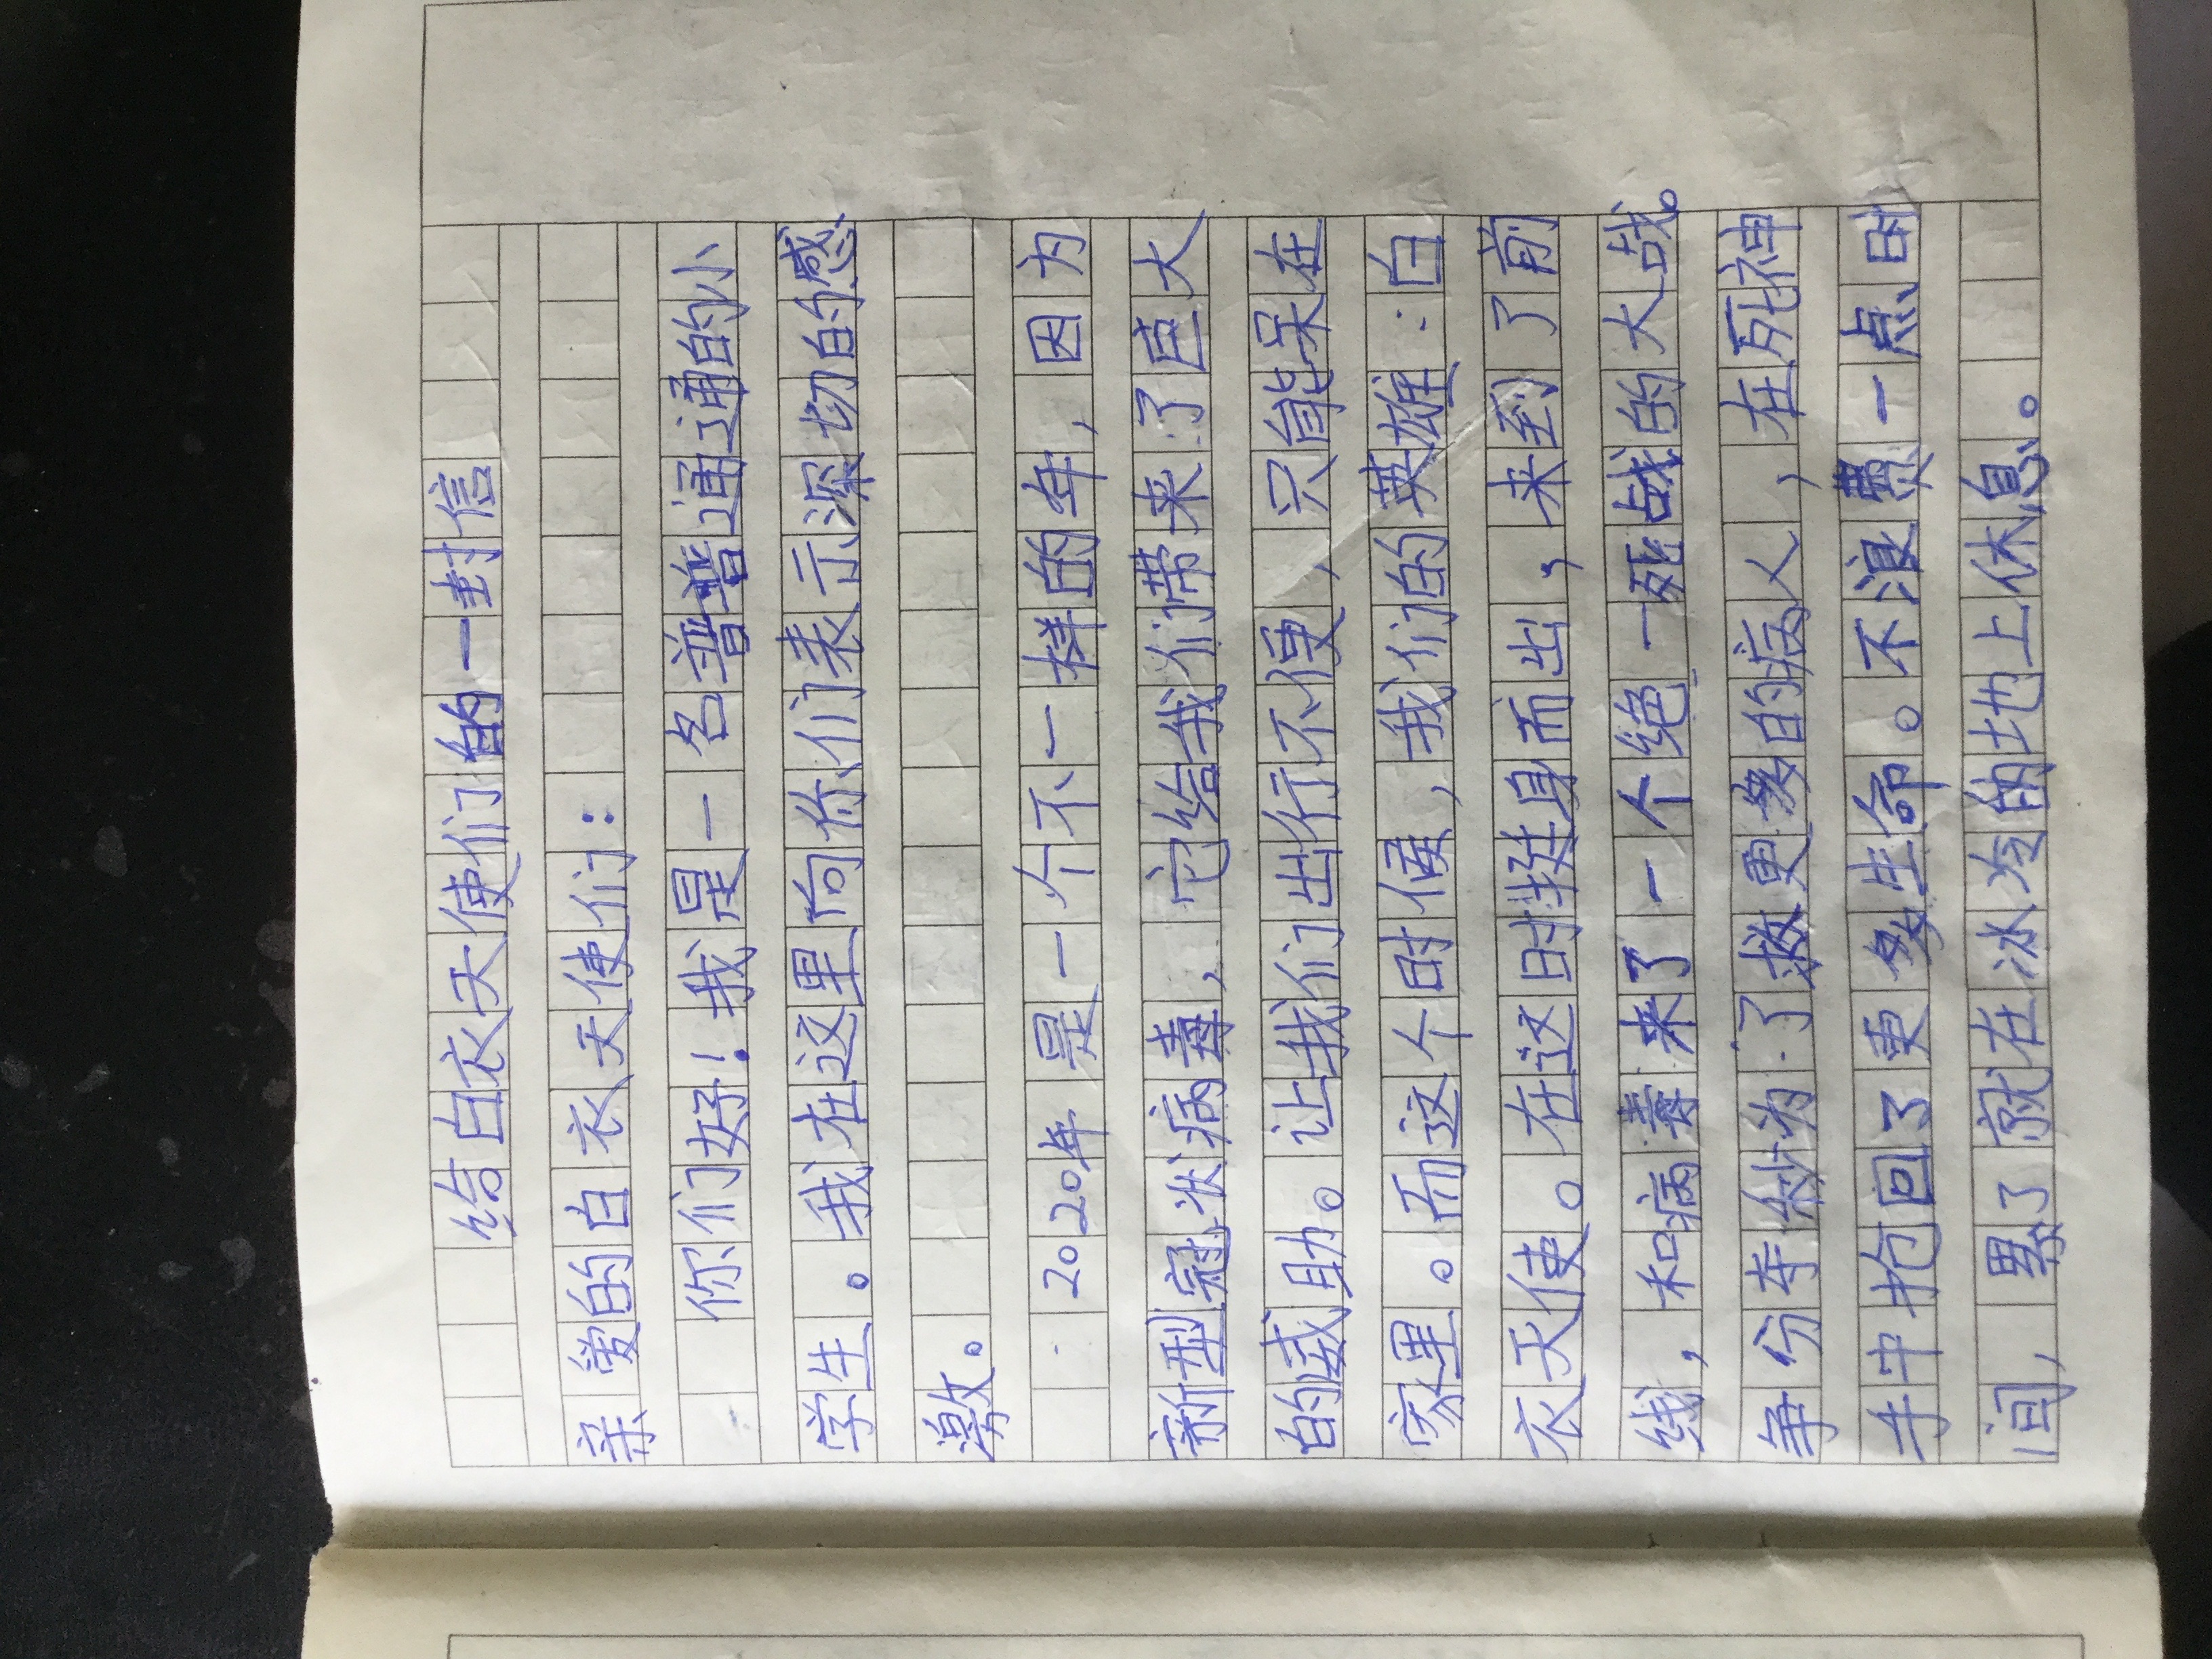 给白衣天使们的一封信
亲爱的白衣天使们:
你们好!我是一名普普通通的小
学生。我在这里向你们表示深切的感
激。
2020年是一个不一样的年,因为
新型冠状病毒,它给我们带来了巨大
的威助。让我们出行不便,只能呆在
家里。而这个时候,我们的英雄:白
衣天使。在这时挺身而出,来到了前
线,和病毒来了一个绝一死战的大战。
争分夺秒为了救更多的病人,在死神
手中抢回了更多生命。不浪费一点时
间,累了就在冰冷的地上休息。